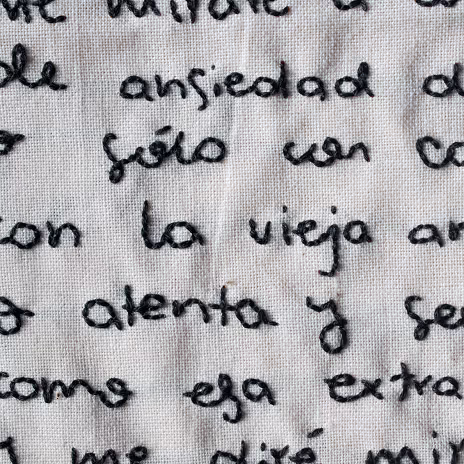 me mirare a
de ansiedad d
sólo con co
con la vieja an
atenta y se
como esa extra
me diré mir